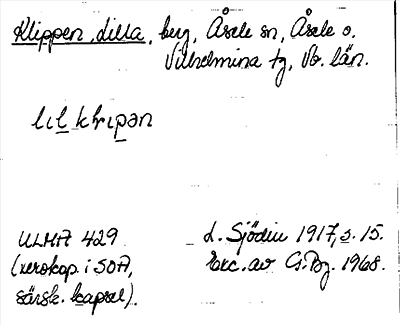 Klippen, Lilla, berg, Åsele sn, Åsele o.
Vilhelmina tg, Vb. län.
lıl klıpən
ULMA 429
(xerokop. i SOA,
särsk. kapsel).
L. Sjödin 1917, s. 15.
Exc. av G. Bg. 1968.